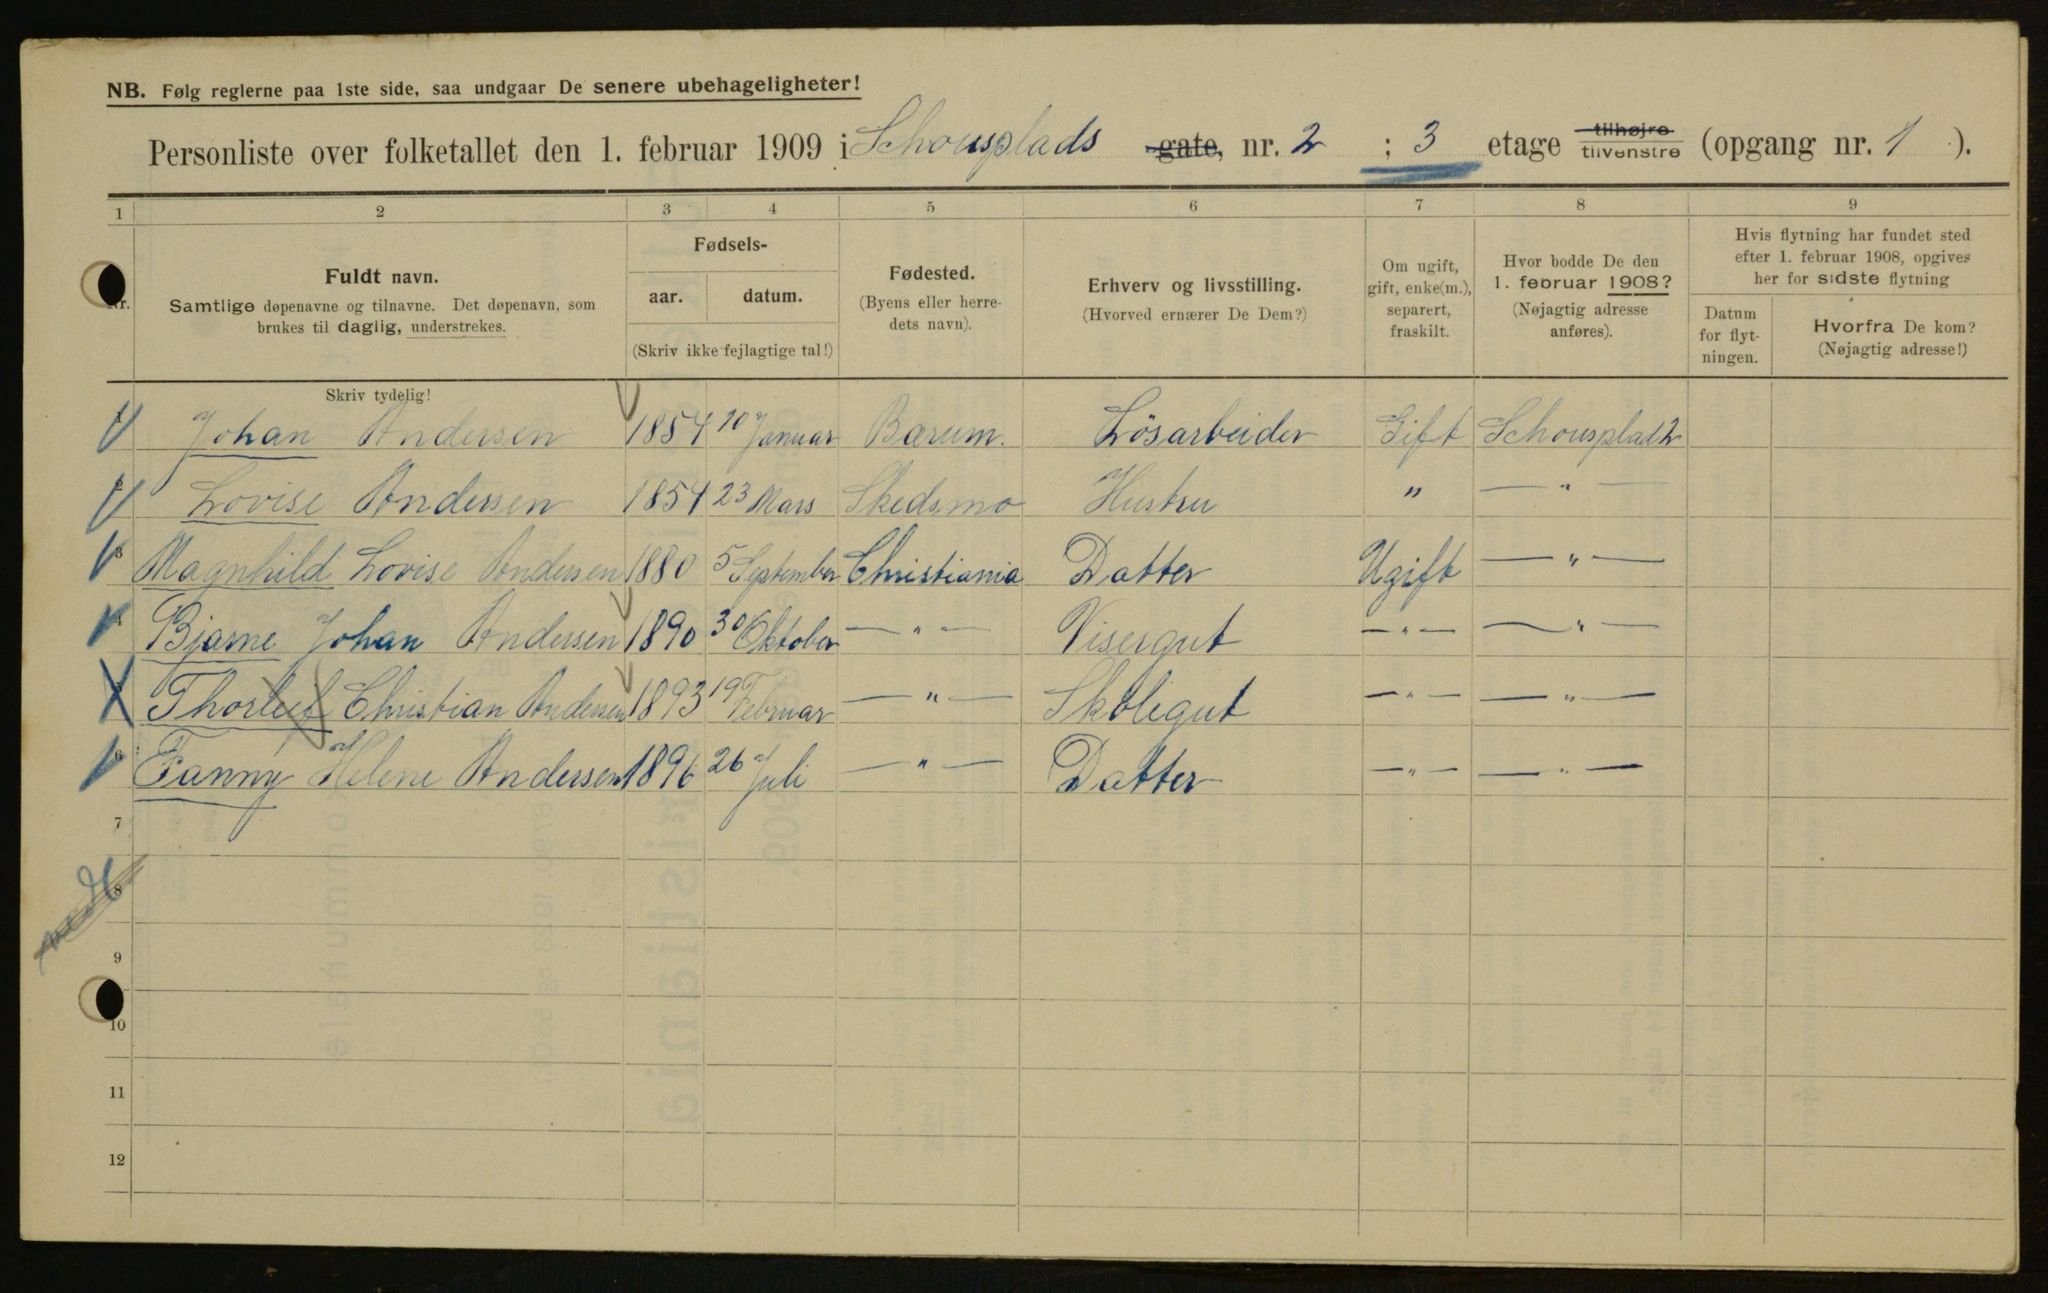 NB. Følg reglerne paa 1ste side, saa undgaar De senere ubehageligheter!
Personliste over folketallet den 1. februar 1909 i Schousplads gate, nr. 2 ; 3 etage tilhøjre tilvenstre (opgang nr. 1 ).
1 2 3 4 5 6 7 8 9
Nr.
Fuldt navn.
Samtlige døpenavne og tilnavne. Det døpenavn, som
brukes til daglig, understrekes.
Skriv tydelig!
Fødsels-
aar. datum.
(Skriv ikke fejlagtige tal!)
Fødested.
(Byens eller herre-
dets navn).
Erhverv og livsstilling.
(Hvorved ernærer De Dem?)
Om ugift,
gift, enke(m.),
separert,
fraskilt.
Hvor bodde De den
1. februar 1908?
(Nøjagtig adresse
anføres).
Hvis flytning har fundet sted
efter 1. februar 1908, opgives
her for sidste flytning
Datum
for flyt-
ningen.
Hvorfra De kom?
(Nøjagtig adresse!)
1 Johan Andersen 1854 10 Januar Bærum. Lösarbeider Gift Schousplads 2
2 Lovise Andersen 1854 23 Mars Skedsmo Hustru " — " —
3 Magnhild Lovise Andersen 1880 5 September Christiania Datter Ugift — " —
4 Bjarne Johan Andersen 1890 30 Oktober — " — Visergut — " — — " —
5 Thorleif Christian Andersen 1893 19 Februar — " — Skolegut — " — — " —
6 Fanny Helene Andersen 1896 26 Juli — " — Datter — " — — " —
7
8
9
10
11
12